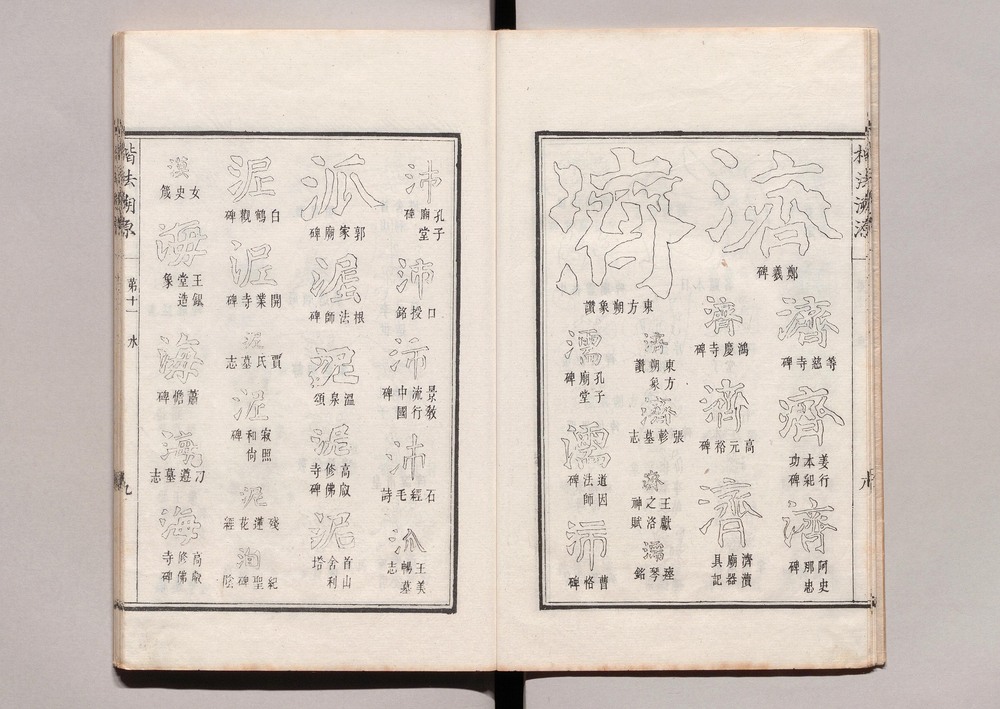 濟
鄭羲碑
濟
等慈寺碑
濟
姜行本紀功碑
濟
阿史那忠碑
濟
鴻慶寺碑
濟
高元裕碑
濟
濟瀆廟器具記
濟
東方朔象讚
濟
東方朔象讚
濟
張軫墓志
王獻之洛神賦
瘞琴銘
濡
孔子廟堂碑
濡
道因法師碑
沛
曹恪碑
楷法溯源
第十一
水
九
沛
孔子廟堂碑
沛
口授銘
沛
景教流行中國碑
沛
石經毛詩
派
王美暢墓志
派
郭家廟碑
渥
根法師碑
泥
溫泉頌
泥
高叡修佛寺碑
泥
首山舍利塔
泥
白鶴觀碑
泥
開業寺碑
泥
賈氏墓志
泥
寂照和尚碑
泥
殘蓮花經
紀聖碑陰
漠
女史箴
海
王銀堂造象
海
蕭憺碑
刀遵墓志
海
高叡修佛寺碑